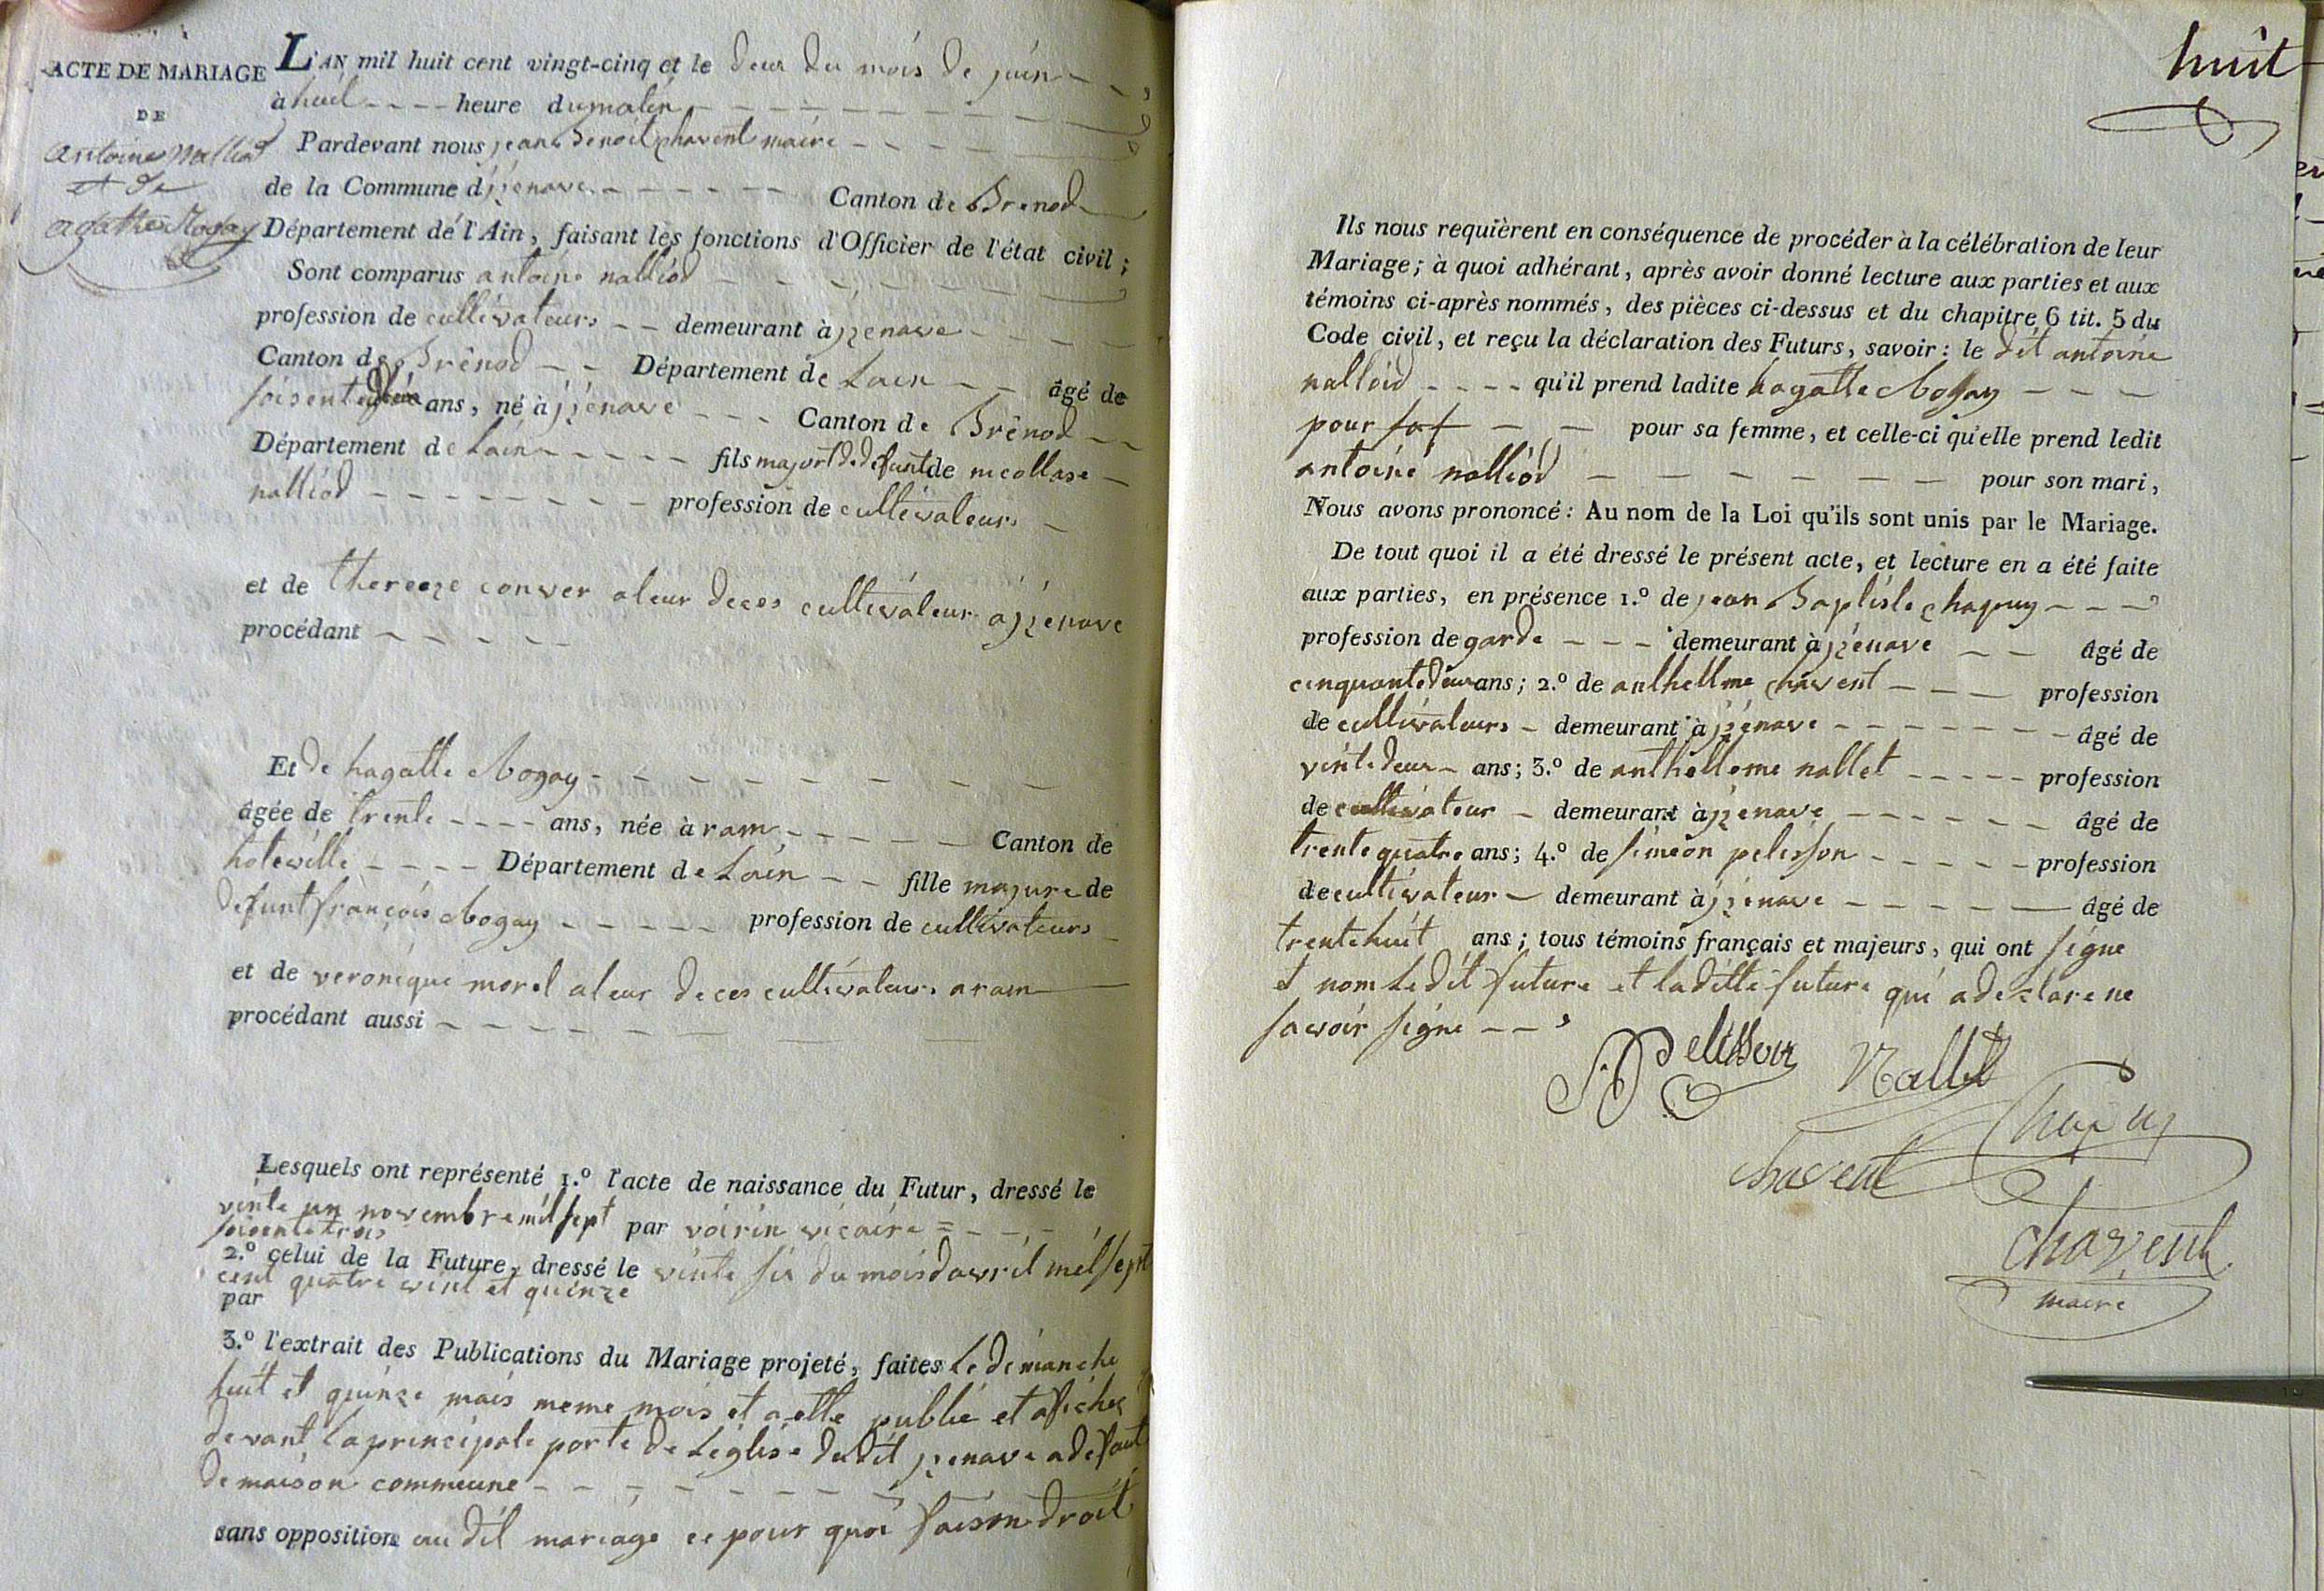 ACTE DE MARIAGE
DE
antoine Nalliod
et de
agathe Mogay
L'AN mil huit cent vingt-cinq et le deux du mois de juin
à huit heure du matin
Pardevant nous jean Benoit chavent maire
de la Commune d'izenave Canton de Brenod
Département de l'Ain, faisant les fonctions d'Officier de l'état civil;
Sont comparus antoine nalliod
profession de cultivateurs demeurant à izenave
Canton de Brénod Département de Lain âgé de
soisente ans, né à izénave Canton de Brénod
Département de Lain fils majort de defunt de nicollase
nalliod profession de cultivateurs
et de thereeze conver a leur deces cultivateur à izenave
procédant
Et de hagatte Mogay
âgée de trente ans, née à ram Canton de
hoteville Département de Lain fille majure de
defunt françois Mogay profession de cultivateurs
et de veronique morel a leur deces cultivateurs a ram
procédant aussi
Lesquels ont représenté 1.º l'acte de naissance du Futur, dressé le
vinte un novembre mil sept par voirin vicaire
soisente trois
2.º celui de la Future, dressé le vinte six du mois davril mil sept
cent quatre vint et quinze
par
3.º l'extrait des Publications du Mariage projeté, faites Le dimanche
huit et quinze mais meme mois et a ette publié et afiches
devant La principale porte de Léglise dudit izenave a defaut
de maison commeune
sans opposition au dit mariage ce pour quoi faison droit
huit
Ils nous requièrent en conséquence de procéder à la célébration de leur
Mariage; à quoi adhérant, après avoir donné lecture aux parties et aux
témoins ci-après nommés, des pièces ci-dessus et du chapitre 6 tit. 5 du
Code civil, et reçu la déclaration des Futurs, savoir: le dit antoine
nalloid qu'il prend ladite hagatte Mogay
pour pour sa femme, et celle-ci qu'elle prend ledit
antoine nalliod pour son mari,
Nous avons prononcé: Au nom de la Loi qu'ils sont unis par le Mariage.
De tout quoi il a été dressé le présent acte, et lecture en a été faite
aux parties, en présence 1.º de jean Baptiste chapuy
profession de garde demeurant à izénave âgé de
cinquante deux ans; 2.º de anthellme chavent profession
de cultivateurs demeurant à izénave âgé de
vinte deux ans; 3.º de anthelleme nallet profession
de cultivateur demeurant à izenave âgé de
trente quatre ans; 4.º de simeon pelisson profession
de cultivateur demeurant à izénave âgé de
trente huit ans; tous témoins français et majeurs, qui ont signe
et nom Ledit future et laditte future qui a declare ne
savoir signe
S. Pelisson Nallet
Chapuy
chavent
chavent
maire